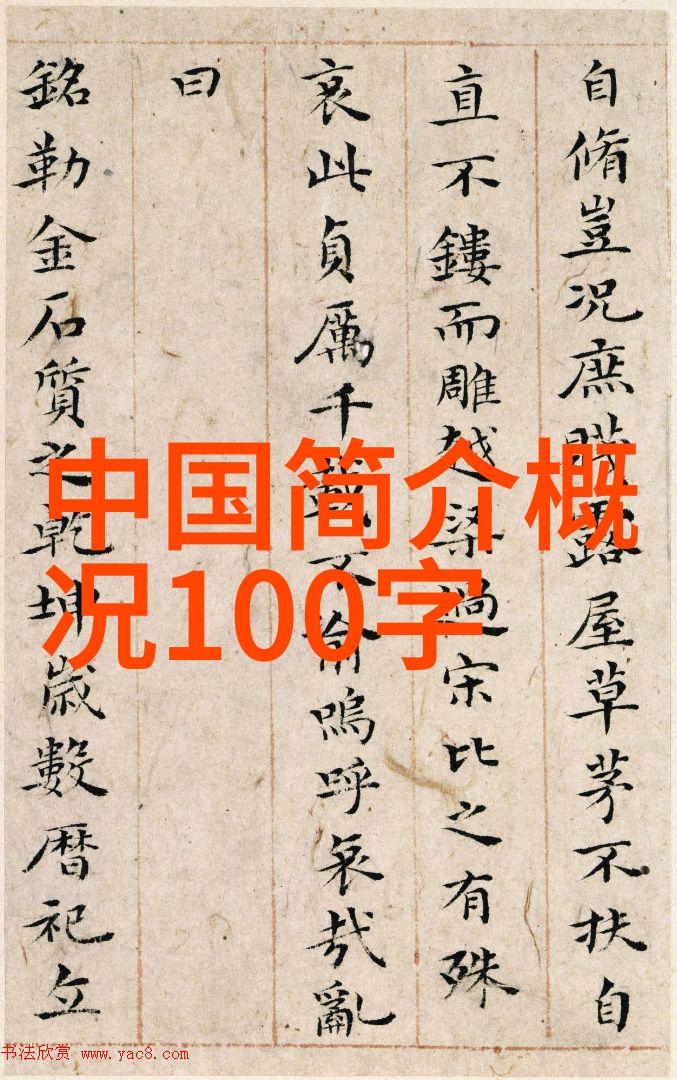 自脩豈况庶賤露屋草茅不扶自
直不鏤而雕越梁過宋比之有殊
哀此貞厲千載不渝嗚呼哀哉亂
曰
銘勒金石質之乾坤歲數暦祀立
中国简介概
况100字
书法欣赏 www.yac8.com